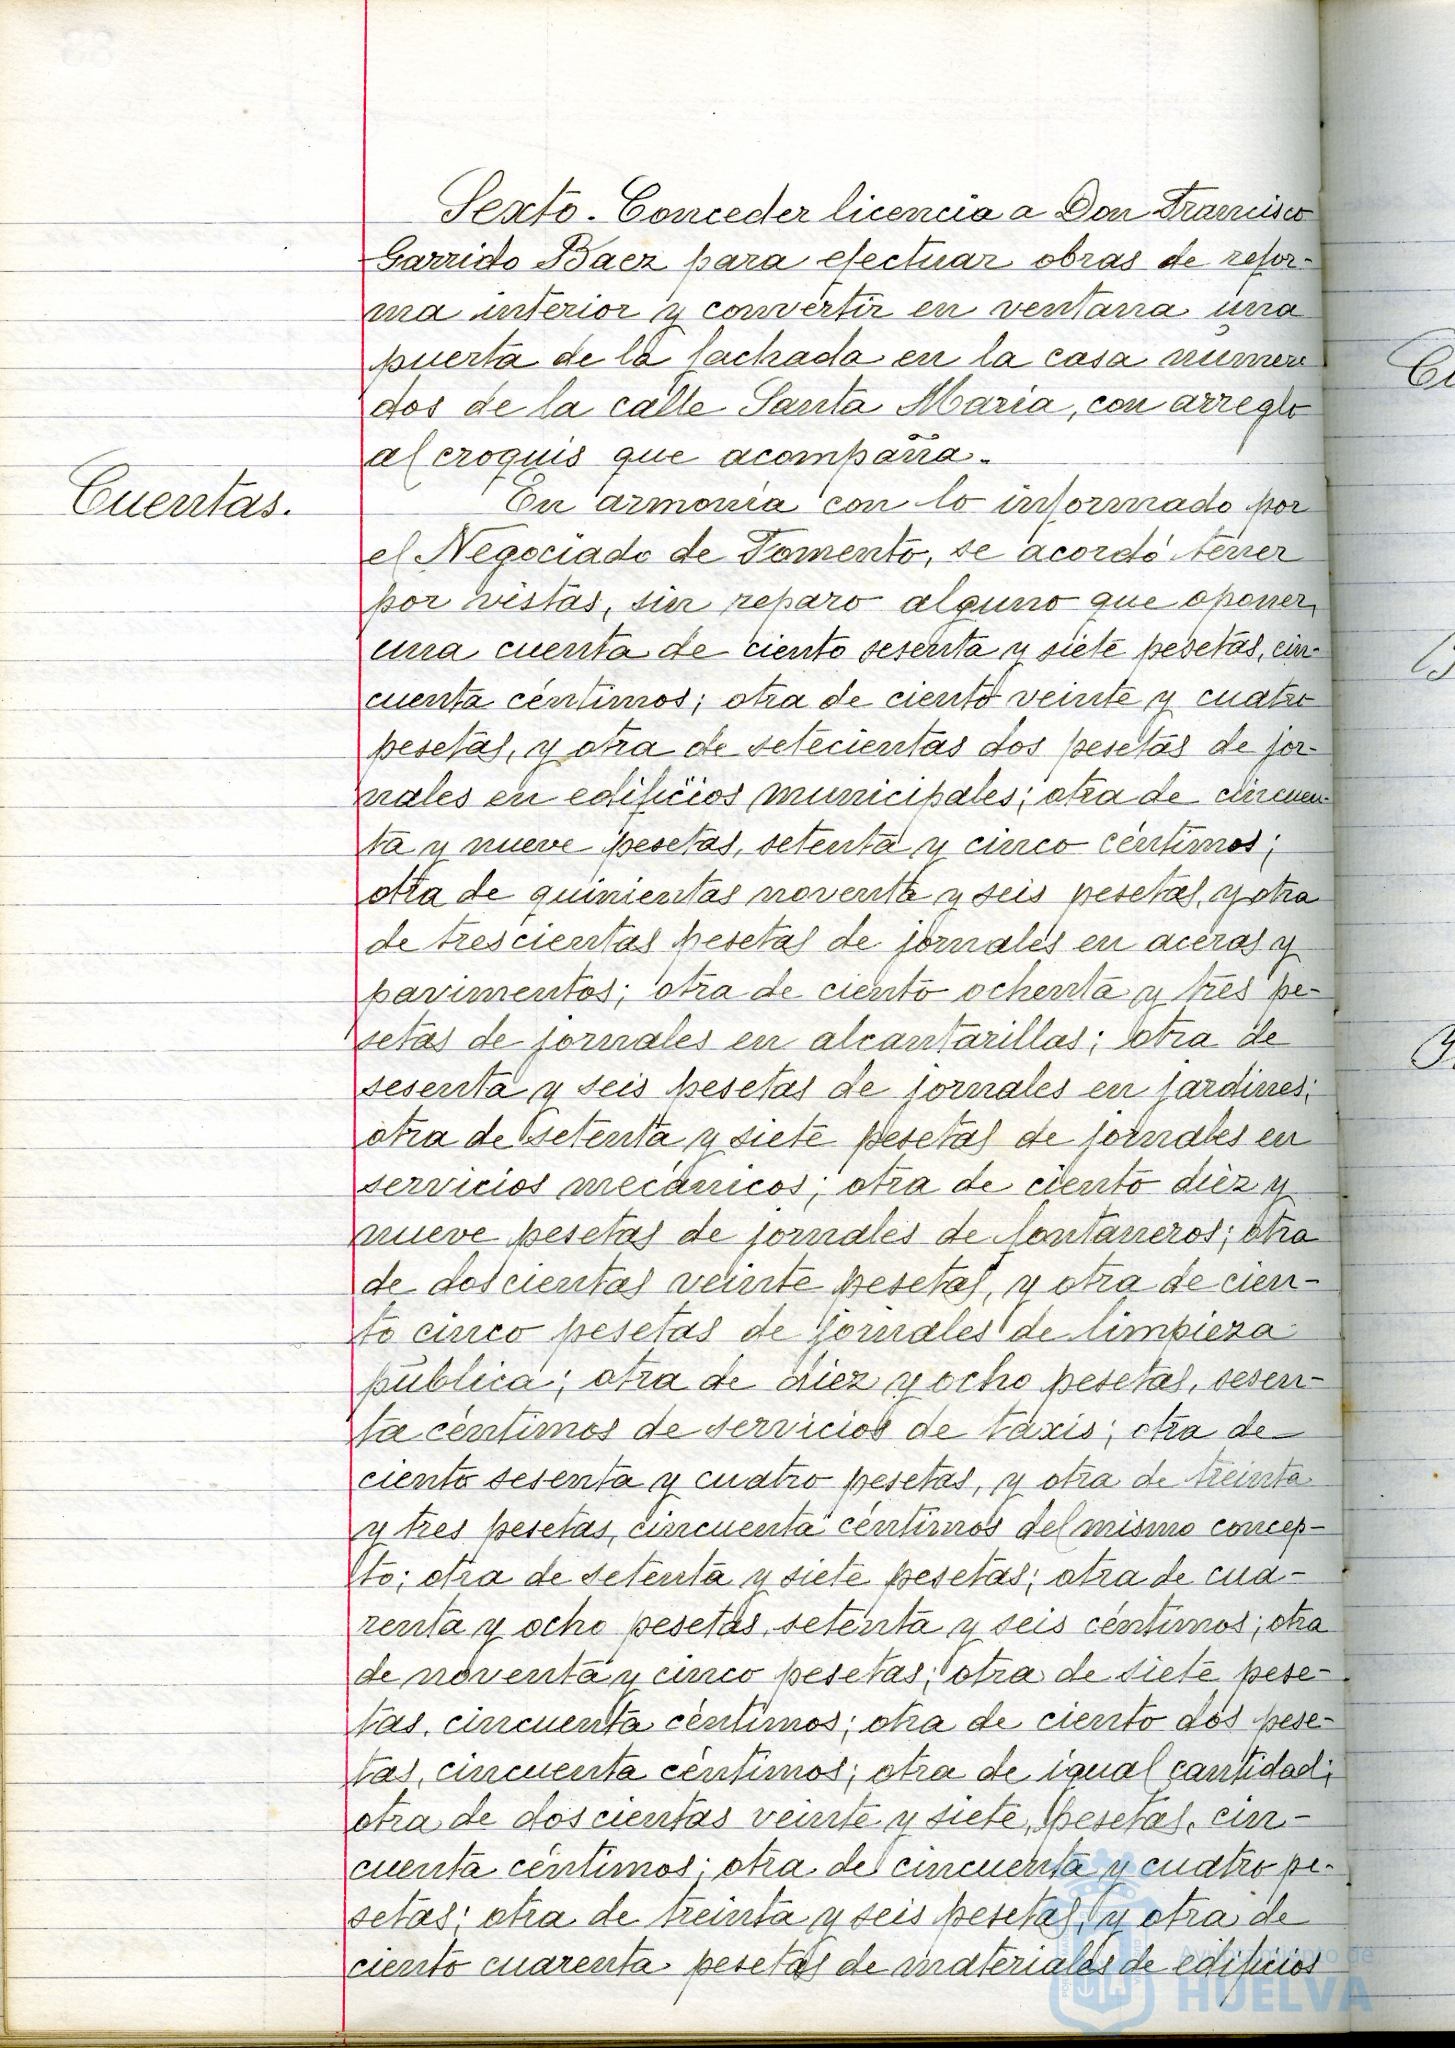 Sexto. Conceder licencia a Don Francisco
Garrido Baez para efectuar obras de refor-
ma interior y convertir en ventana una
puerta de la fachada en la casa número
dos de la calle Santa Maria, con arreglo
al croquis que acompaña.
Cuentas.
En armonía con lo informado por
el Negociado de Fomento, se acordó tener
por vistas, sin reparo alguno que oponer,
una cuenta de ciento sesenta y siete pesetas, cin-
cuenta céntimos; otra de ciento veinte y cuatro
pesetas, y otra de setecientas dos pesetas de jor-
nales en edificios municipales; otra de cincuen-
ta y nueve pesetas, setenta y cinco céntimos;
otra de quinientas noventa y seis pesetas, y otra
de trescientas pesetas de jornales en aceras y
pavimentos; otra de ciento ochenta y tres pe-
setas de jornales en alcantarillas; otra de
sesenta y seis pesetas de jornales en jardines;
otra de setenta y siete pesetas de jornales en
servicios mecánicos; otra de ciento diez y
nueve pesetas de jornales de fontaneros; otra
de doscientas veinte pesetas, y otra de cien-
to cinco pesetas de jornales de limpieza
pública; otra de diez y ocho pesetas, sesen-
ta céntimos de servicios de taxis; otra de
ciento sesenta y cuatro pesetas, y otra de treinta
y tres pesetas, cincuenta céntimos del mismo concep-
to; otra de setenta y siete pesetas; otra de cua-
renta y ocho pesetas, setenta y seis céntimos; otra
de noventa y cinco pesetas; otra de siete pese-
tas, cincuenta céntimos; otra de ciento dos pese-
tas, cincuenta céntimos; otra de igual cantidad;
otra de doscientas veinte y siete, pesetas, cin-
cuenta céntimos; otra de cincuenta y cuatro pe-
setas; otra de treinta y seis pesetas, y otra de
ciento cuarenta pesetas de materiales de edificios
Ayuntamiento de
HUELVA